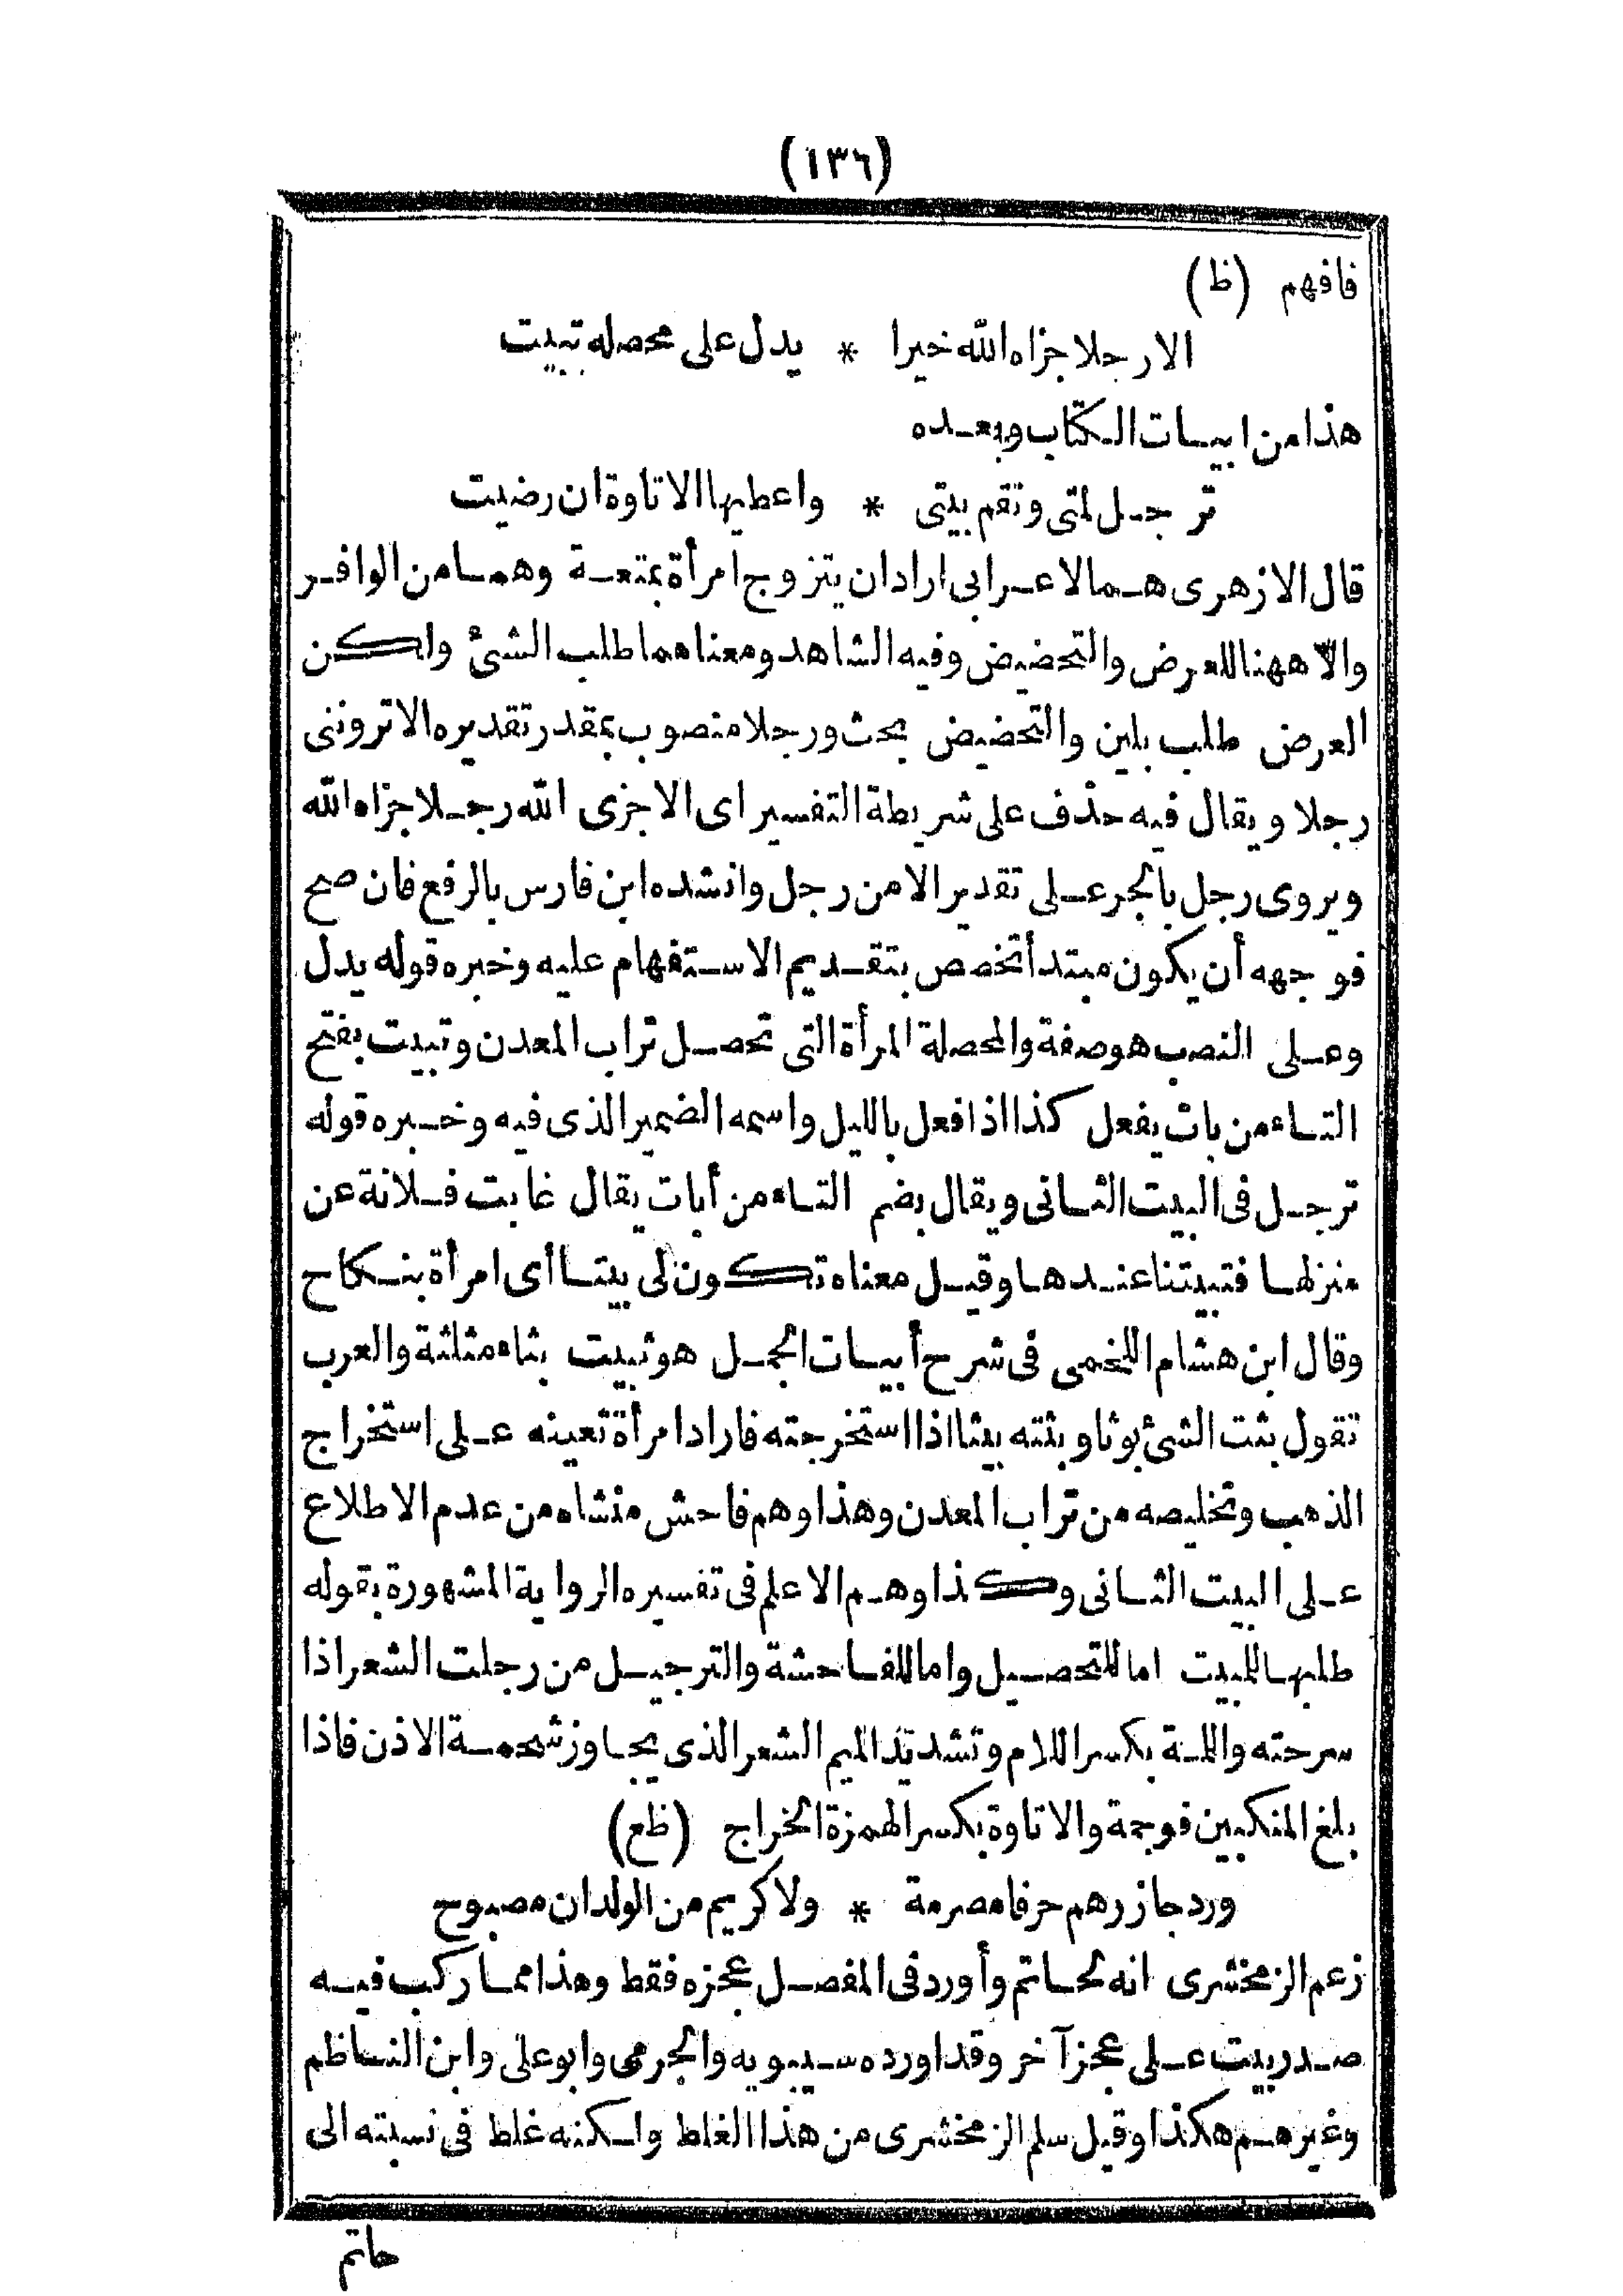 (١٣٦)
فافهم (ظ)
الا رجلا جزاه الله خيرا * يدل على محصله تبيت
هذا من ابيات الكتاب وبعده
ترجل لمتى وتقم بيتى * واعطيها الاتاوة ان رضيت
قال الازهرى هما لاعرابى اراد ان يتزوج امرأة بمتعة وهما من الوافر
والا ههنا للعرض والتحضيض وفيه الشاهد ومعناهما طلب الشئ ولكن
العرض طلب بلين والتحضيض بحث ورجلا منصوب بمقدر تقديره الا ترونى
رجلا ويقال فيه حذف على شريطة التفسير اى الا جزى الله رجلا جزاه الله
ويروى رجل بالجر على تقدير الا من رجل وانشده ابن فارس بالرفع فان صح
فوجهه أن يكون مبتدأ تخصص بتقديم الاستفهام عليه وخبره قوله يدل
وعلى النصب هو صفة والمحصلة المرأة التى تحصل تراب المعدن وتبيت بفتح
التاء من بات يفعل كذا اذا فعل بالليل واسمه الضمير الذى فيه وخبره قوله
ترجل فى البيت الثانى ويقال بضم التاء من أبات يقال غابت فلانة عن
منزلها فتبيتنا عندها وقيل معناه تكون لى بيتا أى امرأة بنكاح
وقال ابن هشام اللخمى فى شرح أبيات الجمل هو تبيث بثاء مثلثة والعرب
تقول بثت الشئ بوثا وبثته بيثا اذا استخرجته فاراد امرأة تعينه على استخراج
الذهب وتخليصه من تراب المعدن وهذا وهم فاحش منشاه من عدم الاطلاع
على البيت الثانى وكذا وهم الاعلم فى تفسيره الرواية المشهورة بقوله
طلبها للمبيت اما للتحصيل واما للفاحشة والترجيل من رجلت الشعر اذا
سرحته واللمة بكسر اللام وتشديد الميم الشعر الذى يجاوز شحمة الاذن فاذا
بلغ المنكبين فوجمة والاتاوة بكسر الهمزة الخراج (ظع)
ورد جازرهم حرفا مصرمة * ولا كريم من الولدان مصبوح
زعم الزمخشرى انه لحاتم وأورد فى المفصل عجزه فقط وهذا مما ركب فيه
صدر بيت على عجز آخر وقد اورده سيبويه والجرمى وابو على وابن الناظم
وغيرهم هكذا وقيل سلم الزمخشرى من هذا الغلط ولكنه غلط فى نسبته الى
حاتم